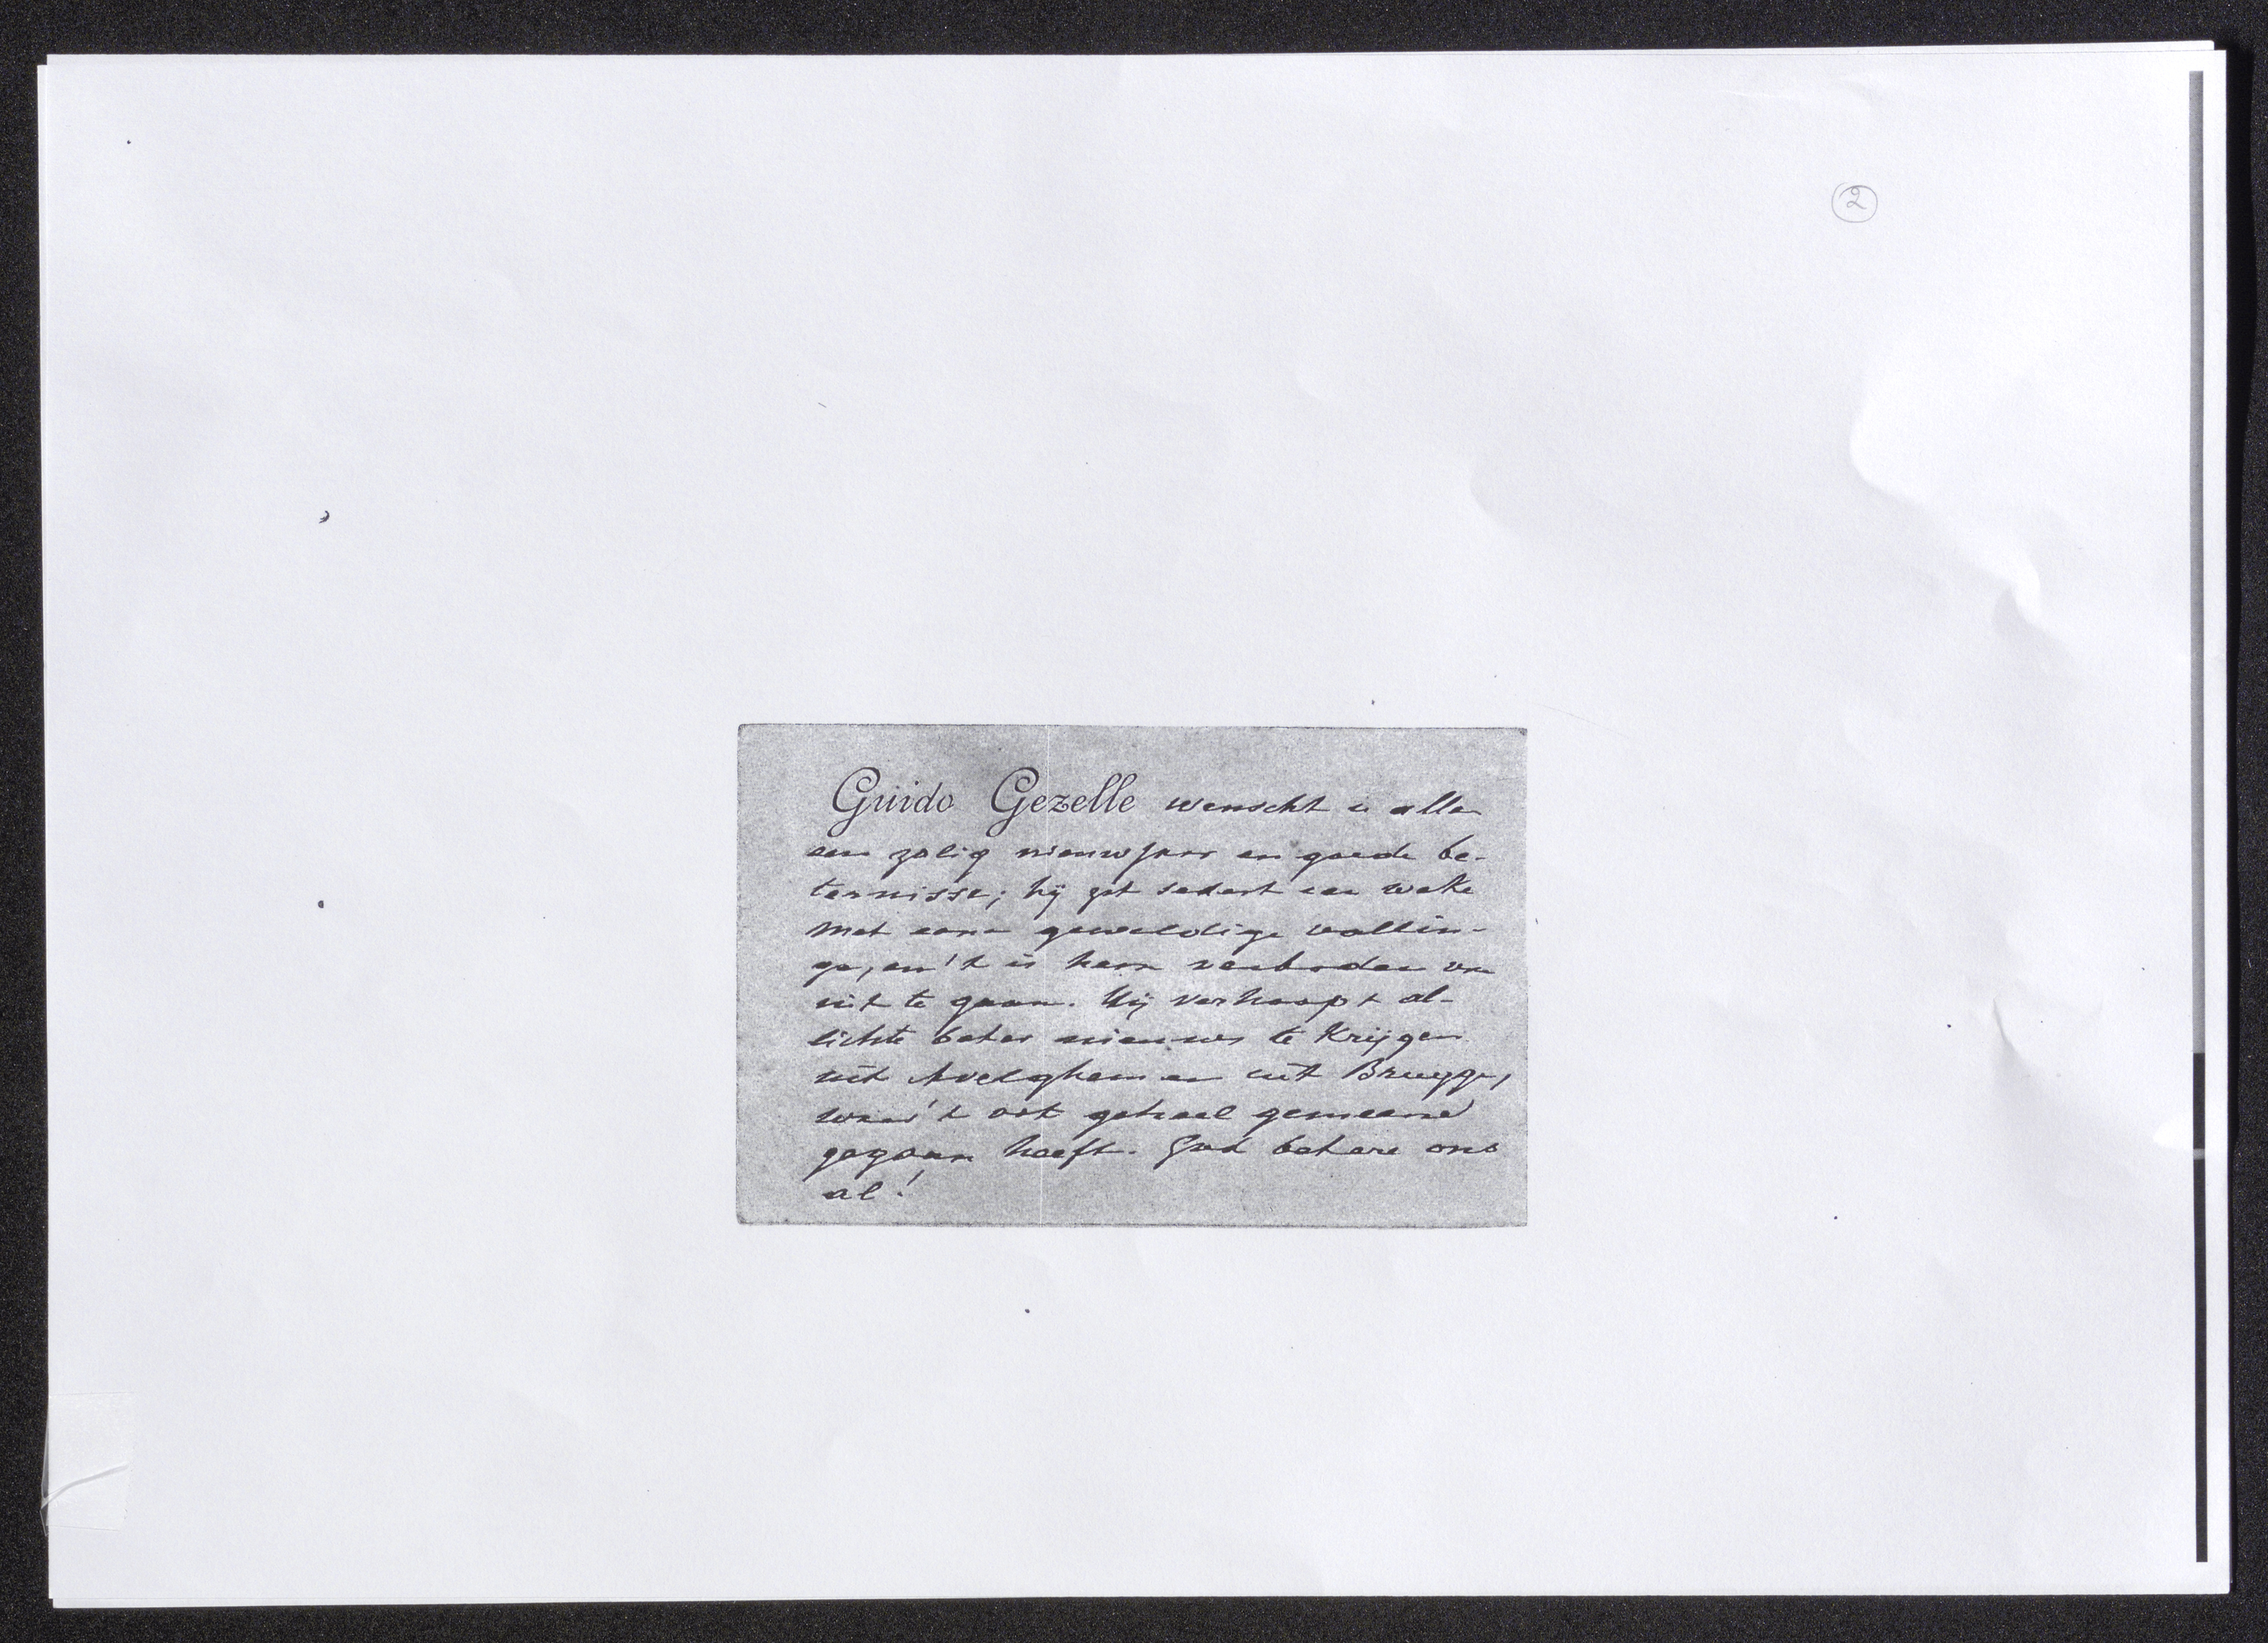 2
Guido Gezelle wenscht u allen
een zalig nieuwjaar en goede be-
ternisse; hij zit sedert een weke
met eene geweldige vallin-
ge, en 't is hem verboden van
uit te gaan. Hij verhoopt al-
lichte beter nieuws te krijgen
uit Avelghem en uit Brugge,
waar 't ook geheel gemeene
gegaan heeft. God betere ons
al!